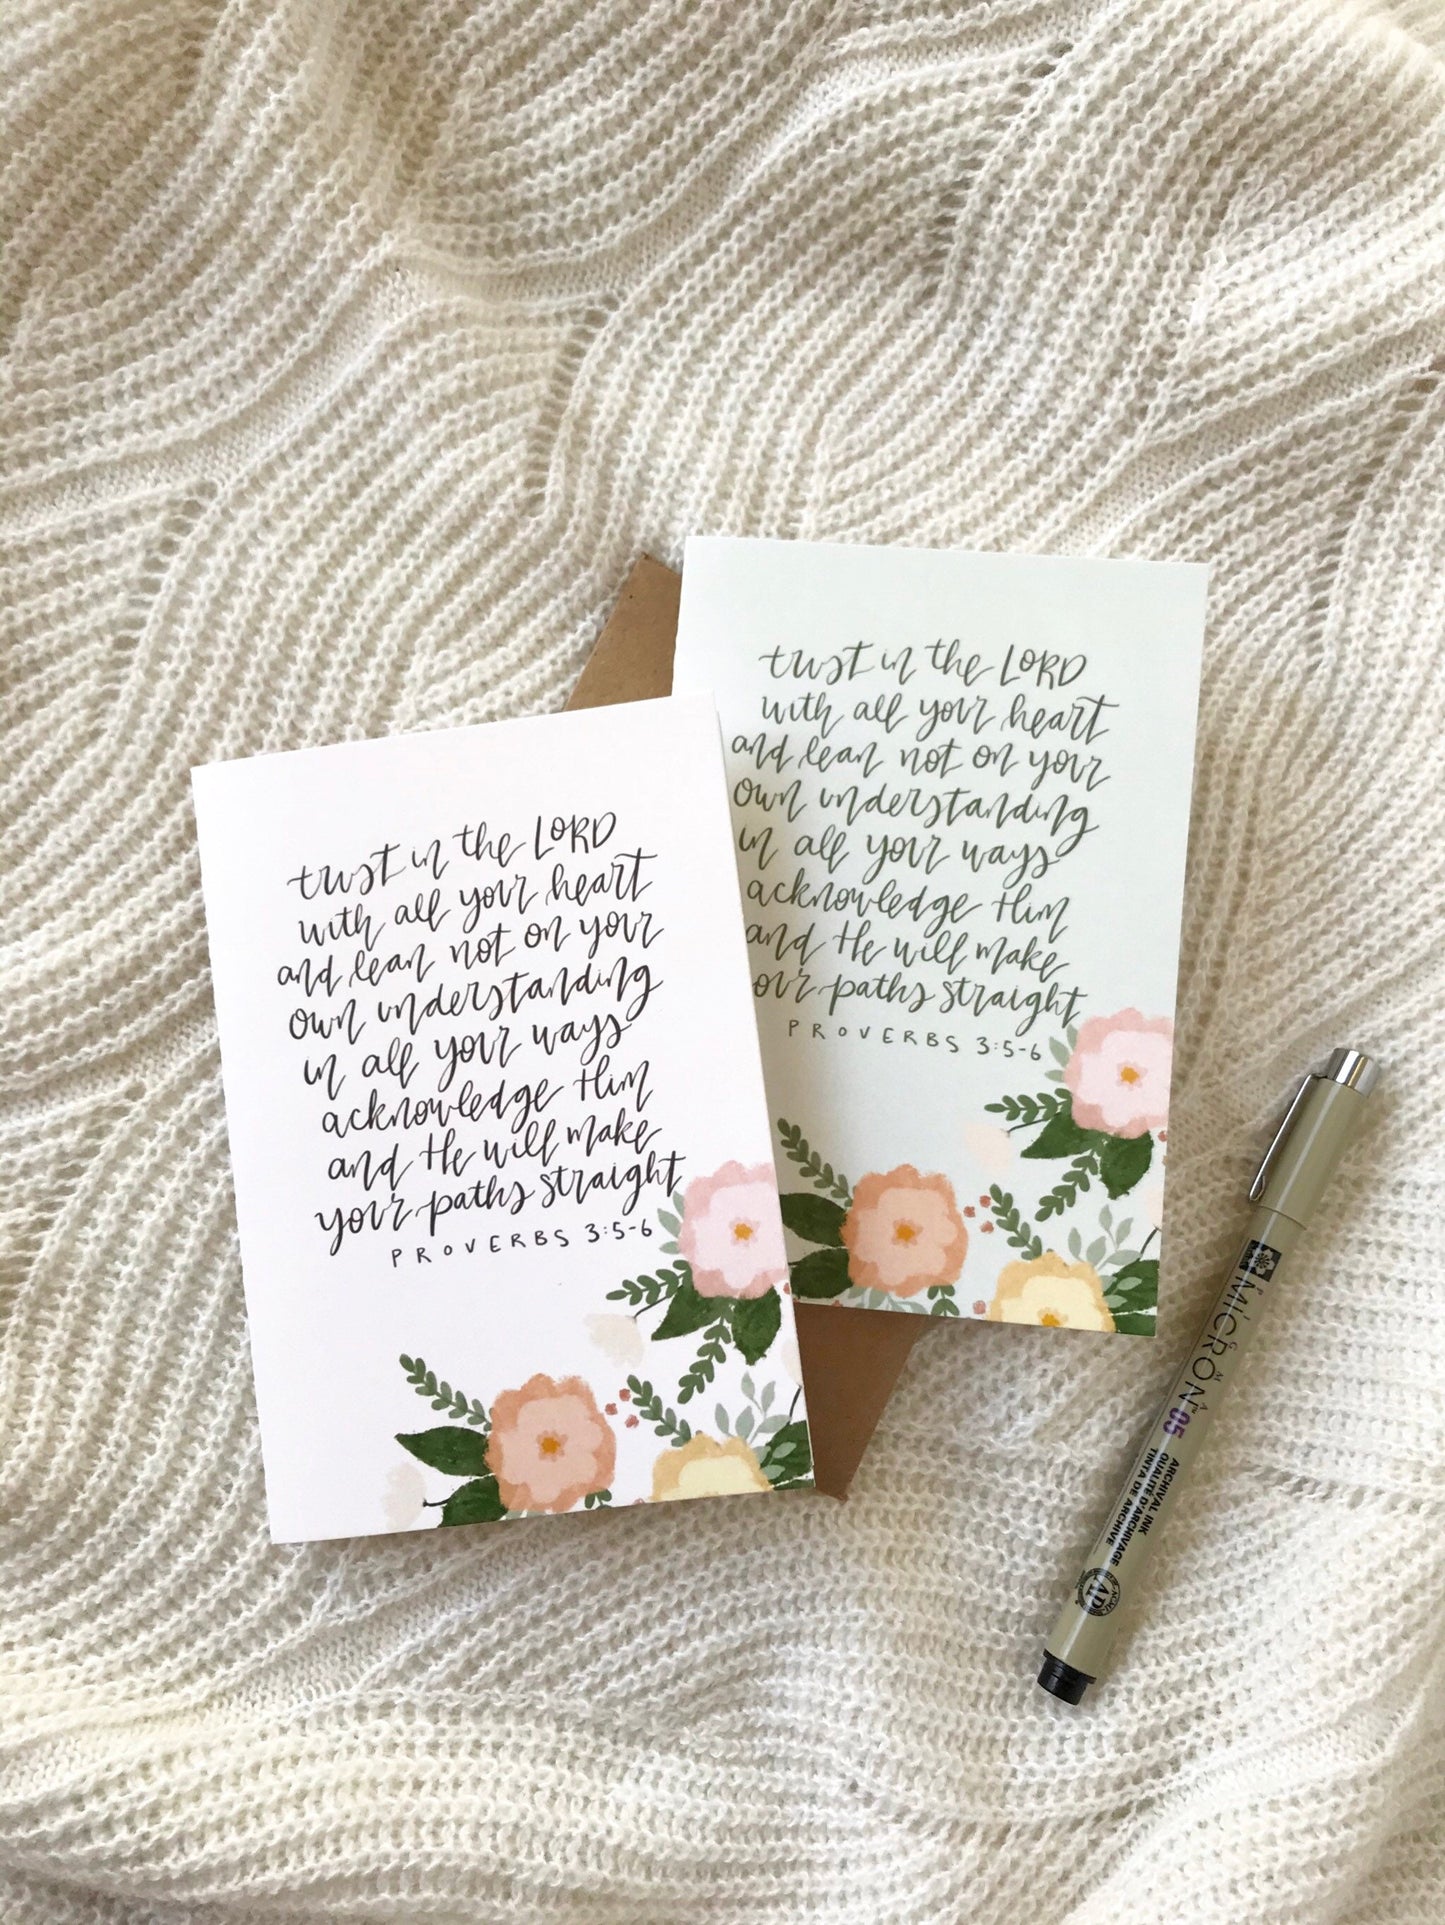 trust in the LORD
with all your heart
and lean not on your
own understanding
in all your ways
acknowledge Him
and He will make
your paths straight
PROVERBS 3:5-6
trust in the LORD
with all your heart
and lean not on your
own understanding
in all your ways
acknowledge Him
and He will make
our paths straight
PROVERBS 3:5-6
PIGMA
MICRON™ 05
ARCHIVAL INK
QUALITÉ D'ARCHIVAGE
TINTA DE ARCHIVE